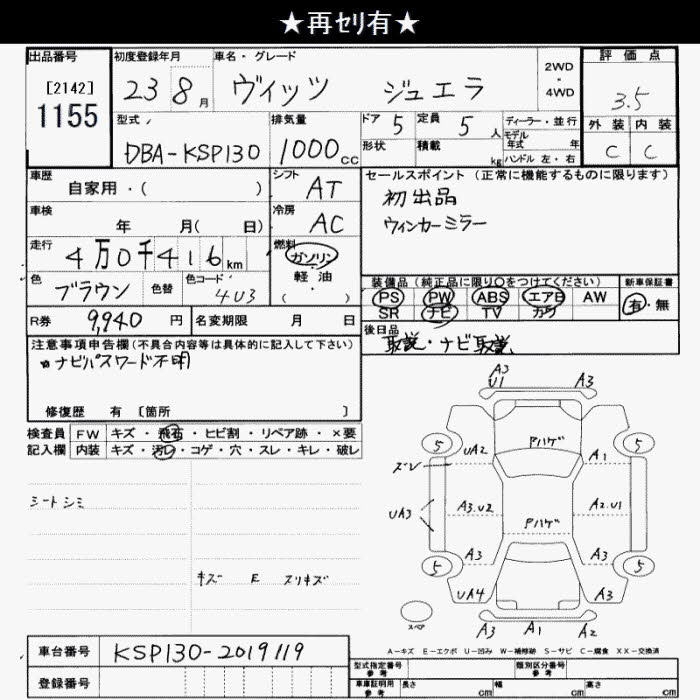 ★再セリ有★
出品番号 初度登録年月 車名・グレード 評価点
[2142] 23 8月 ヴィッツ ジュエラ 2WD・4WD 3.5
1155
型式 排気量 ドア 5 定員 5人 ディーラー・並行 外装 内装
DBA-KSP130 1000cc 形状 積載 kg モデル年式 年 C C
ハンドル 左・右
車歴 シフト セールスポイント(正常に機能するものに限ります)
自家用・( ) AT 初出品
車検 冷房 ウィンカーミラー
年 月( 日) AC
走行 4万0千416km 燃料
ガソリン
軽・油
( )
色 ブラウン 色替 色コード 4U3
装備品(純正品に限り○をつけてください) 新車保証書
PS PW ABS エアB AW 有・無
SR ナビ TV カワ
R券 9,940円 名変期限 月 日 後日品
取説・ナビ取説
注意事項申告欄(不具合内容等は具体的に記入して下さい)
ナビパスワード不明
修復歴 有 [箇所 ]
検査員 FW キズ・飛石・ヒビ割・リペア跡・×要
記入欄 内装 キズ・汚レ・コゲ・穴・スレ・キレ・破レ
シートシミ
キズ E スリキズ
A3
U1 A3
5 UA2 Pハゲ A1 5
ズレ
UA3 A3.U2 Pハゲ A2.U1
5 A3 A3 5
UA4 A3
スペア A3 A1 A2
A=キズ E=エクボ U=凹み W=補修跡 S=サビ C=腐食 XX=交換済
車台番号 KSP130-2019119
型式指定番号 参考 類別区分番号 参考
登録番号 車庫証明用 参考 長さ cm 幅 cm 高さ cm